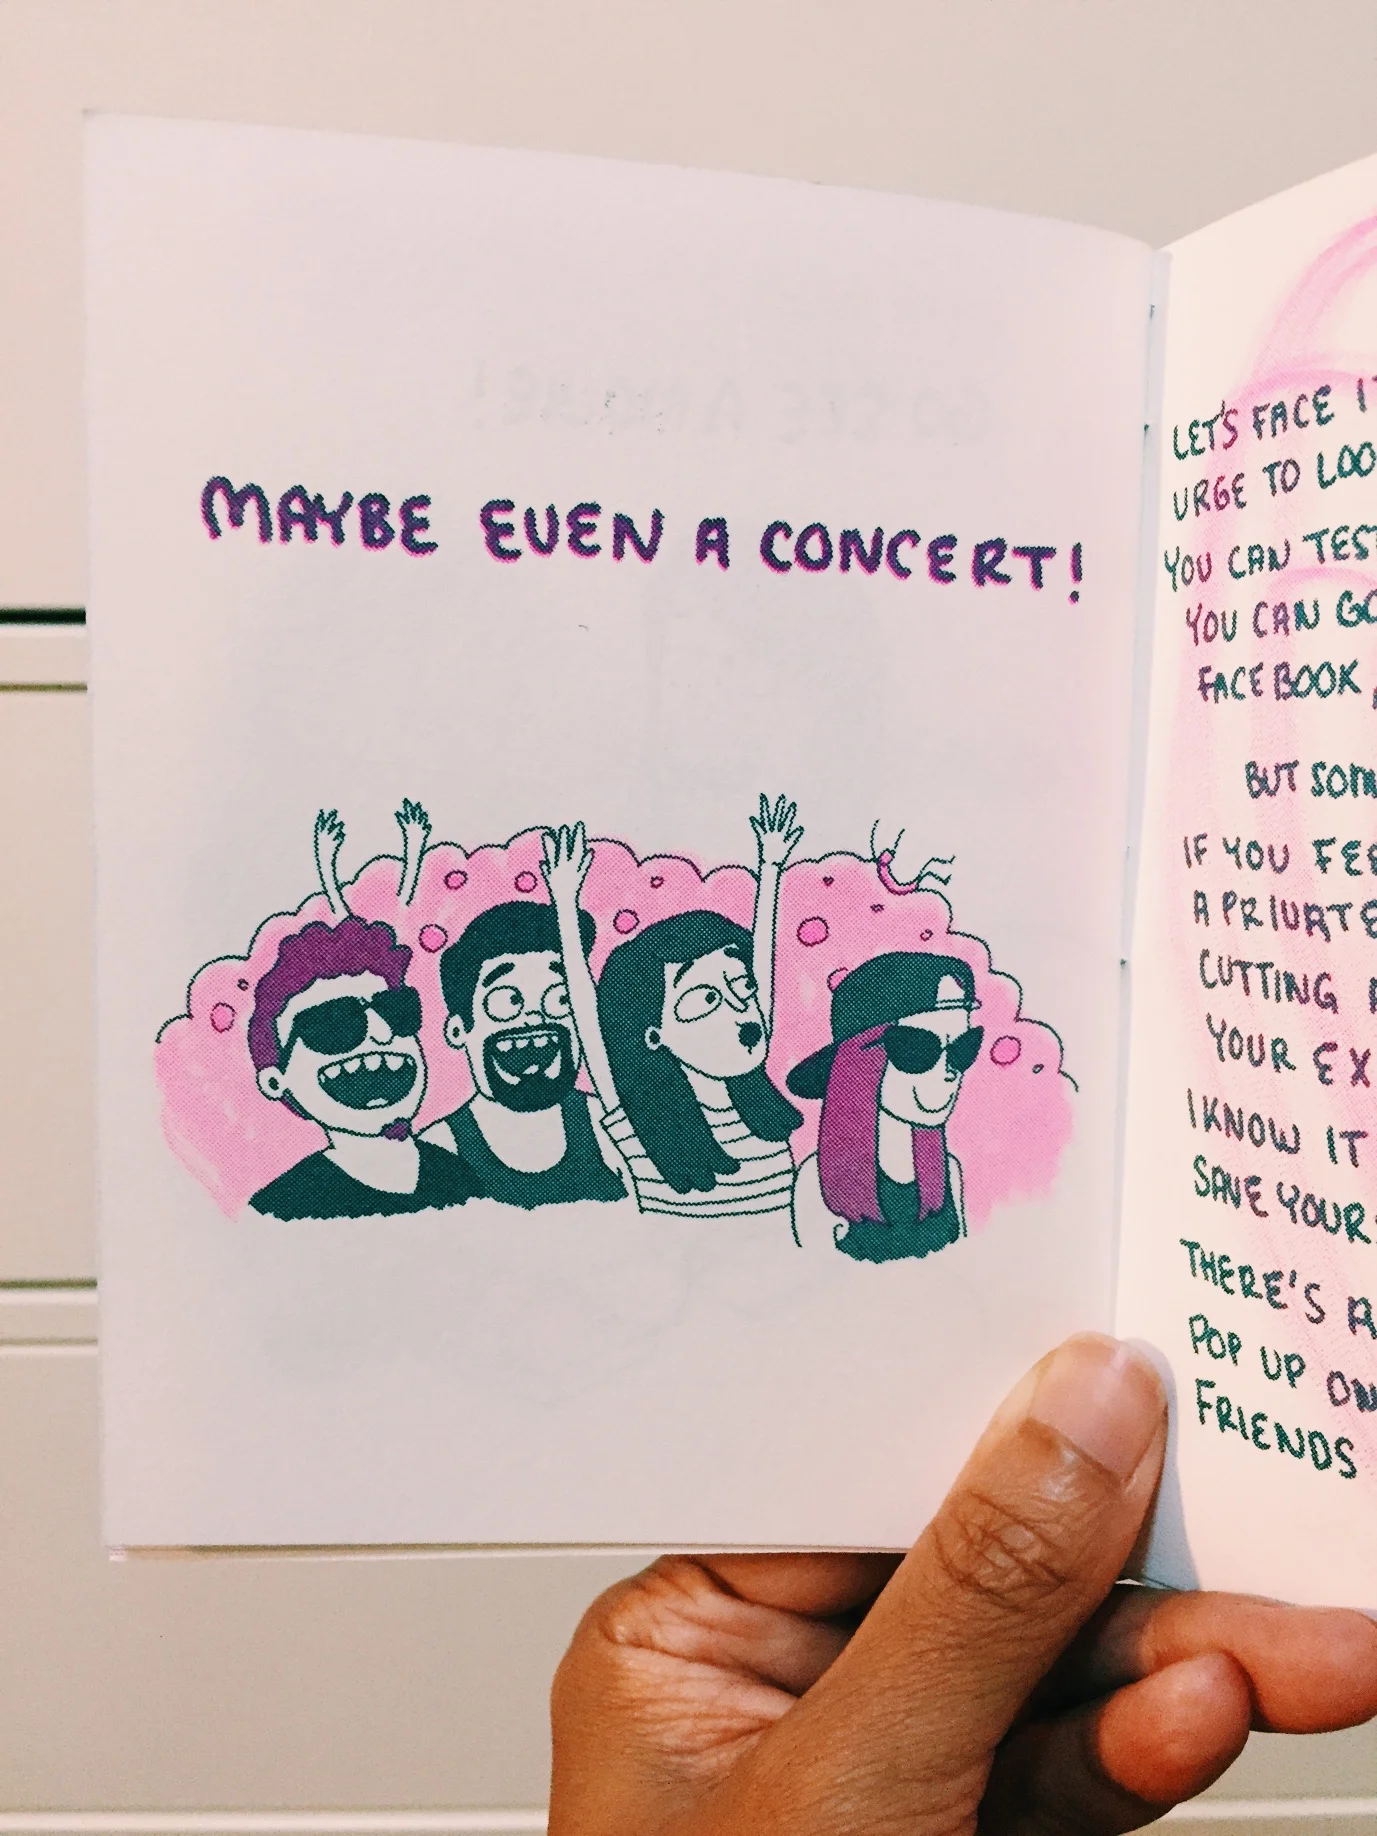 MAYBE EVEN A CONCERT!
LET'S FACE
URGE TO
YOU CAN
YOU CAN
FACEBOOK
BUT
IF YOU
A PRIVATE
CUTTING
YOUR EX
I KNOW IT
SAVE
THERE'S
POP UP
FRIENDS